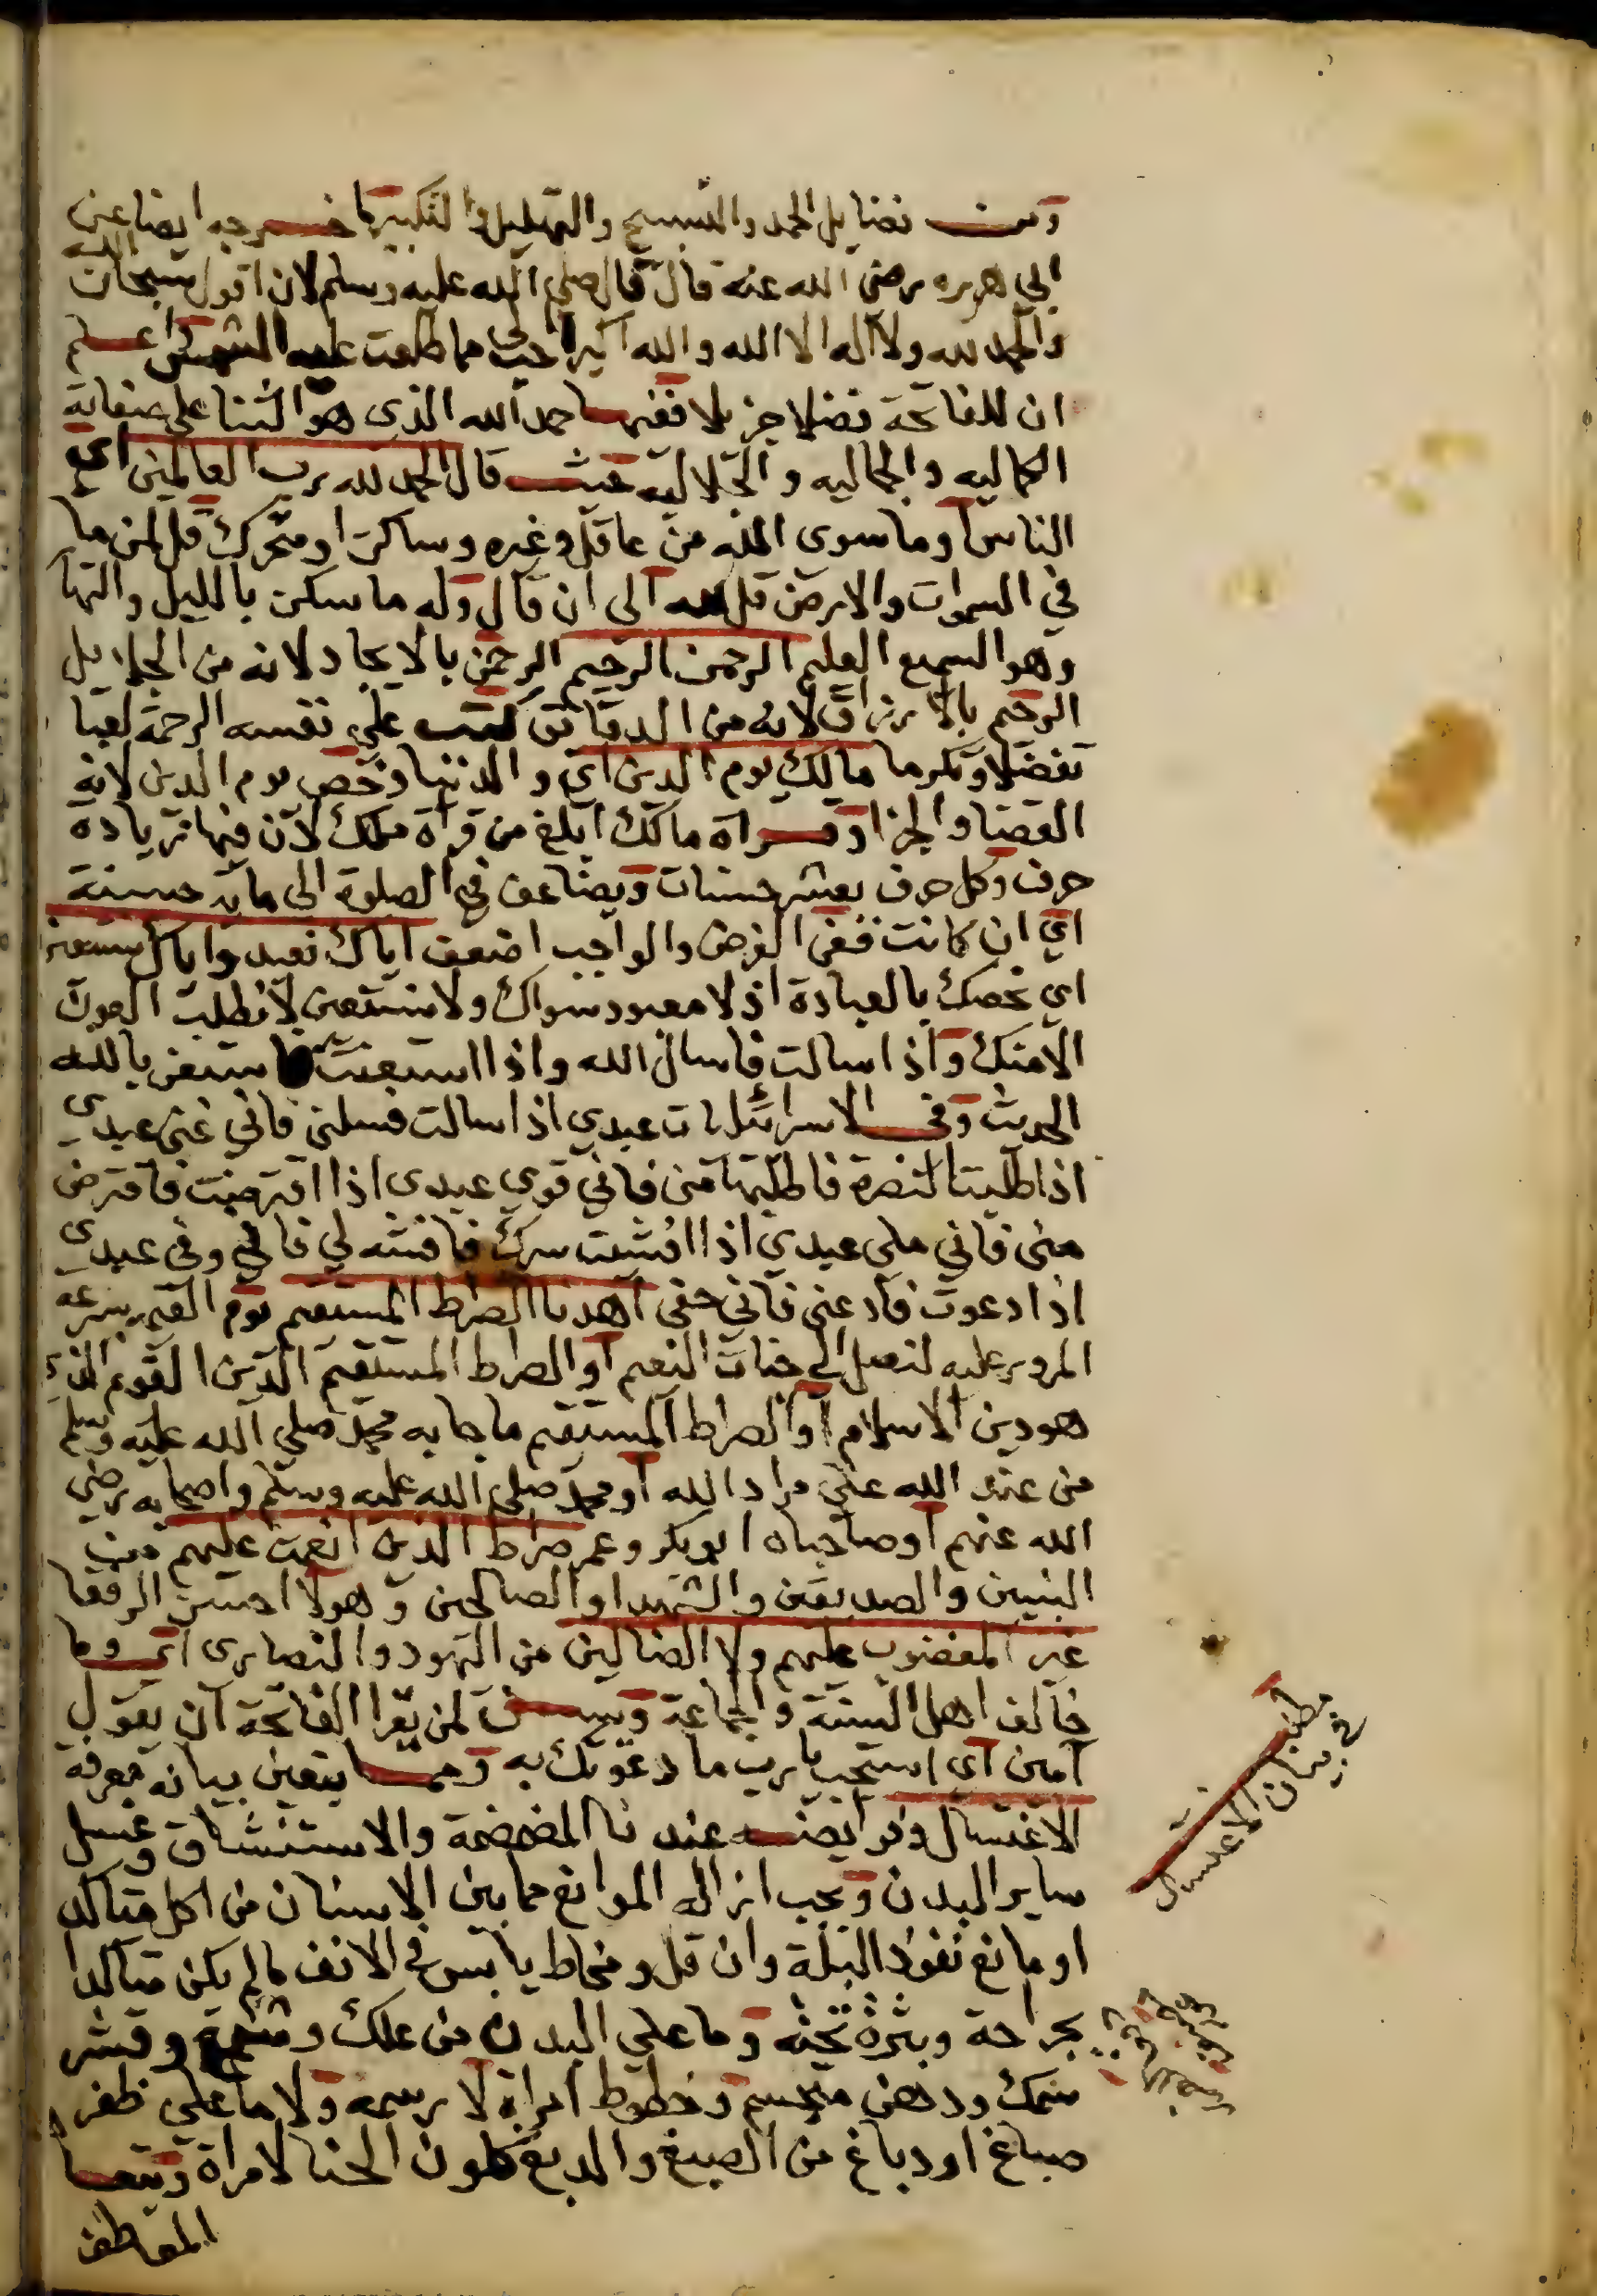 ومن فضايل الحمد والتسبيح والتهليل والتكبير ما خرجه ايضا عن
ابي هريره رضي الله عنه قال قال صلي الله عليه وسلم لان اقول سبحان الله
والحمد لله ولا اله الا الله والله اكبر احب الي مما طلعت عليه الشمس اعلم
ان للفاتحة فضلا جزيلا ففيها حمد الله الذي هو الثنا علي صفاته
الكماليه والجماليه والجلاليه حيث قال الحمد لله رب العالمين اي
الناس او ما سوي الله من عاقل وغيره وساكن او متحرك قل لمن ما
في السموات والارض قل لله الى ان قال وله ما سكن بالليل والنها
وهو السميع العليم الرحمن الرحيم الرحمن بالايجاد لانه من الجلايل
الرحيم بالارزاق لانه من الدقائق كتب علي نفسه الرحمة لعبا
تفضلا وتكرما مالك يوم الدين اي والدنيا وخص يوم الدين لانه
القضا والجزا وقراة مالك ابلغ من قراة ملك لان فيها زيادة
حرف وكل حرف بعشر حسنات ويضاعف في الصلوة الى ماية حسنة
اي ان كانت ففي الفرض والواجب اضعف اياك نعبد واياك نستعين
اي نخصك بالعبادة اذ لا معبود سواك ولا نستعين لا نطلب العون
الا منك واذا سالت فاسال الله واذا استعنت فاستعن بالله
الحديث وفي الاسرائليات عبدي اذا سالت فسلني فاني غني عبدي
اذا طلبت النصرة فاطلبها مني فاني قوي عبدي اذا اقترضت فاقترض
مني فاني ملي عبدي اذا افشيت سرك فافشه لي فاني وفي عبدي
اذا دعوت فادعني فاني حفي اهدنا الصراط المستقيم يوم القيمه بسرعه
المرور عليه لنصل الي جنات النعيم او الصراط المستقيم الدين القويم الذي
هو دين الاسلام او الصراط المستقيم ما جا به محمد صلي الله عليه وسلم
من عند الله علي مراد الله او محمد صلي الله عليه وسلم واصحابه رضي
الله عنهم او صاحباه ابو بكر وعمر صراط الذين انعمت عليهم من
النبيين والصديقين والشهدا والصالحين وهولا احسن الرفقا
غير المغضوب عليهم ولا الضالين من اليهود والنصارى اي وما
خالف اهل السنة والجماعة ويسن لمن يقرا الفاتحة ان يقول
امين اي استجب يا رب ما دعوتك به ومما يتعين بيانه معرفة
الاغتسال وفرايضه عندنا المضمضة والاستنشاق وغسل
ساير البدن ويجب ازالة الموانع مما بين الاسنان من اكل متاكد
او مانع نفوذ البلة وان قل ومخاط يابس في الانف ما لم يكن متاكدا
بجراحة وبثرة تحته وما علي البدن من علك وشمع وقشر
سمك ودهن متجسم وخطوط امراة لا رسمه ولا ما علي ظفر
صباغ او دباغ من الصبغ والدبغ كلون الحنا لامراة ويتعا
المعاطف
مطلب
في بيان الاغتسال